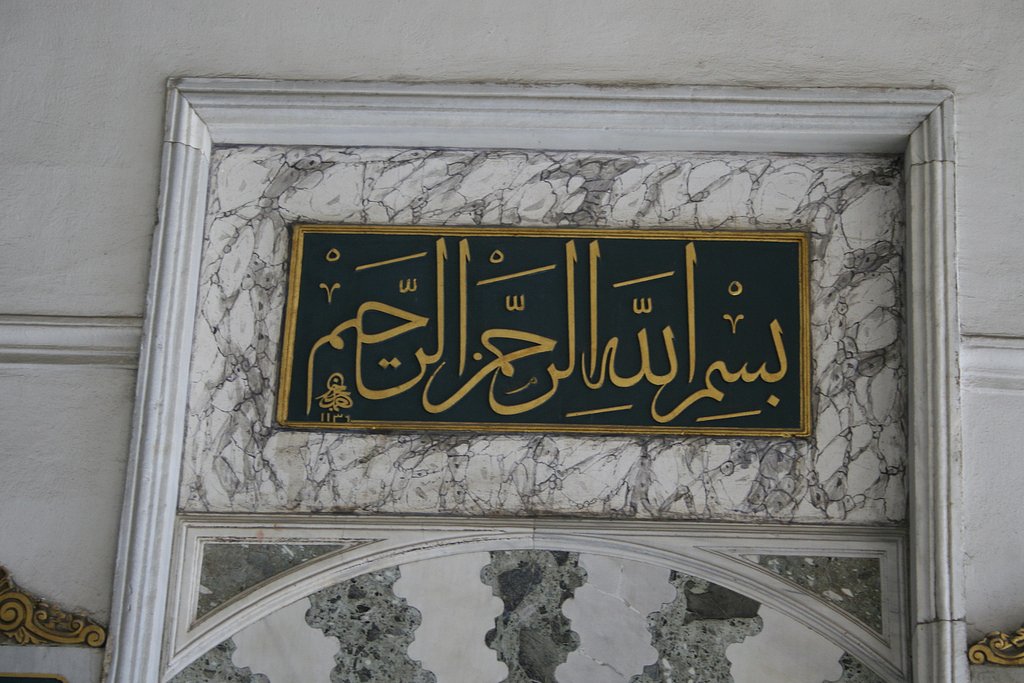 بِسْمِ اللّٰهِ الرَّحْمٰنِ الرَّحِيمِ
١١٣٦